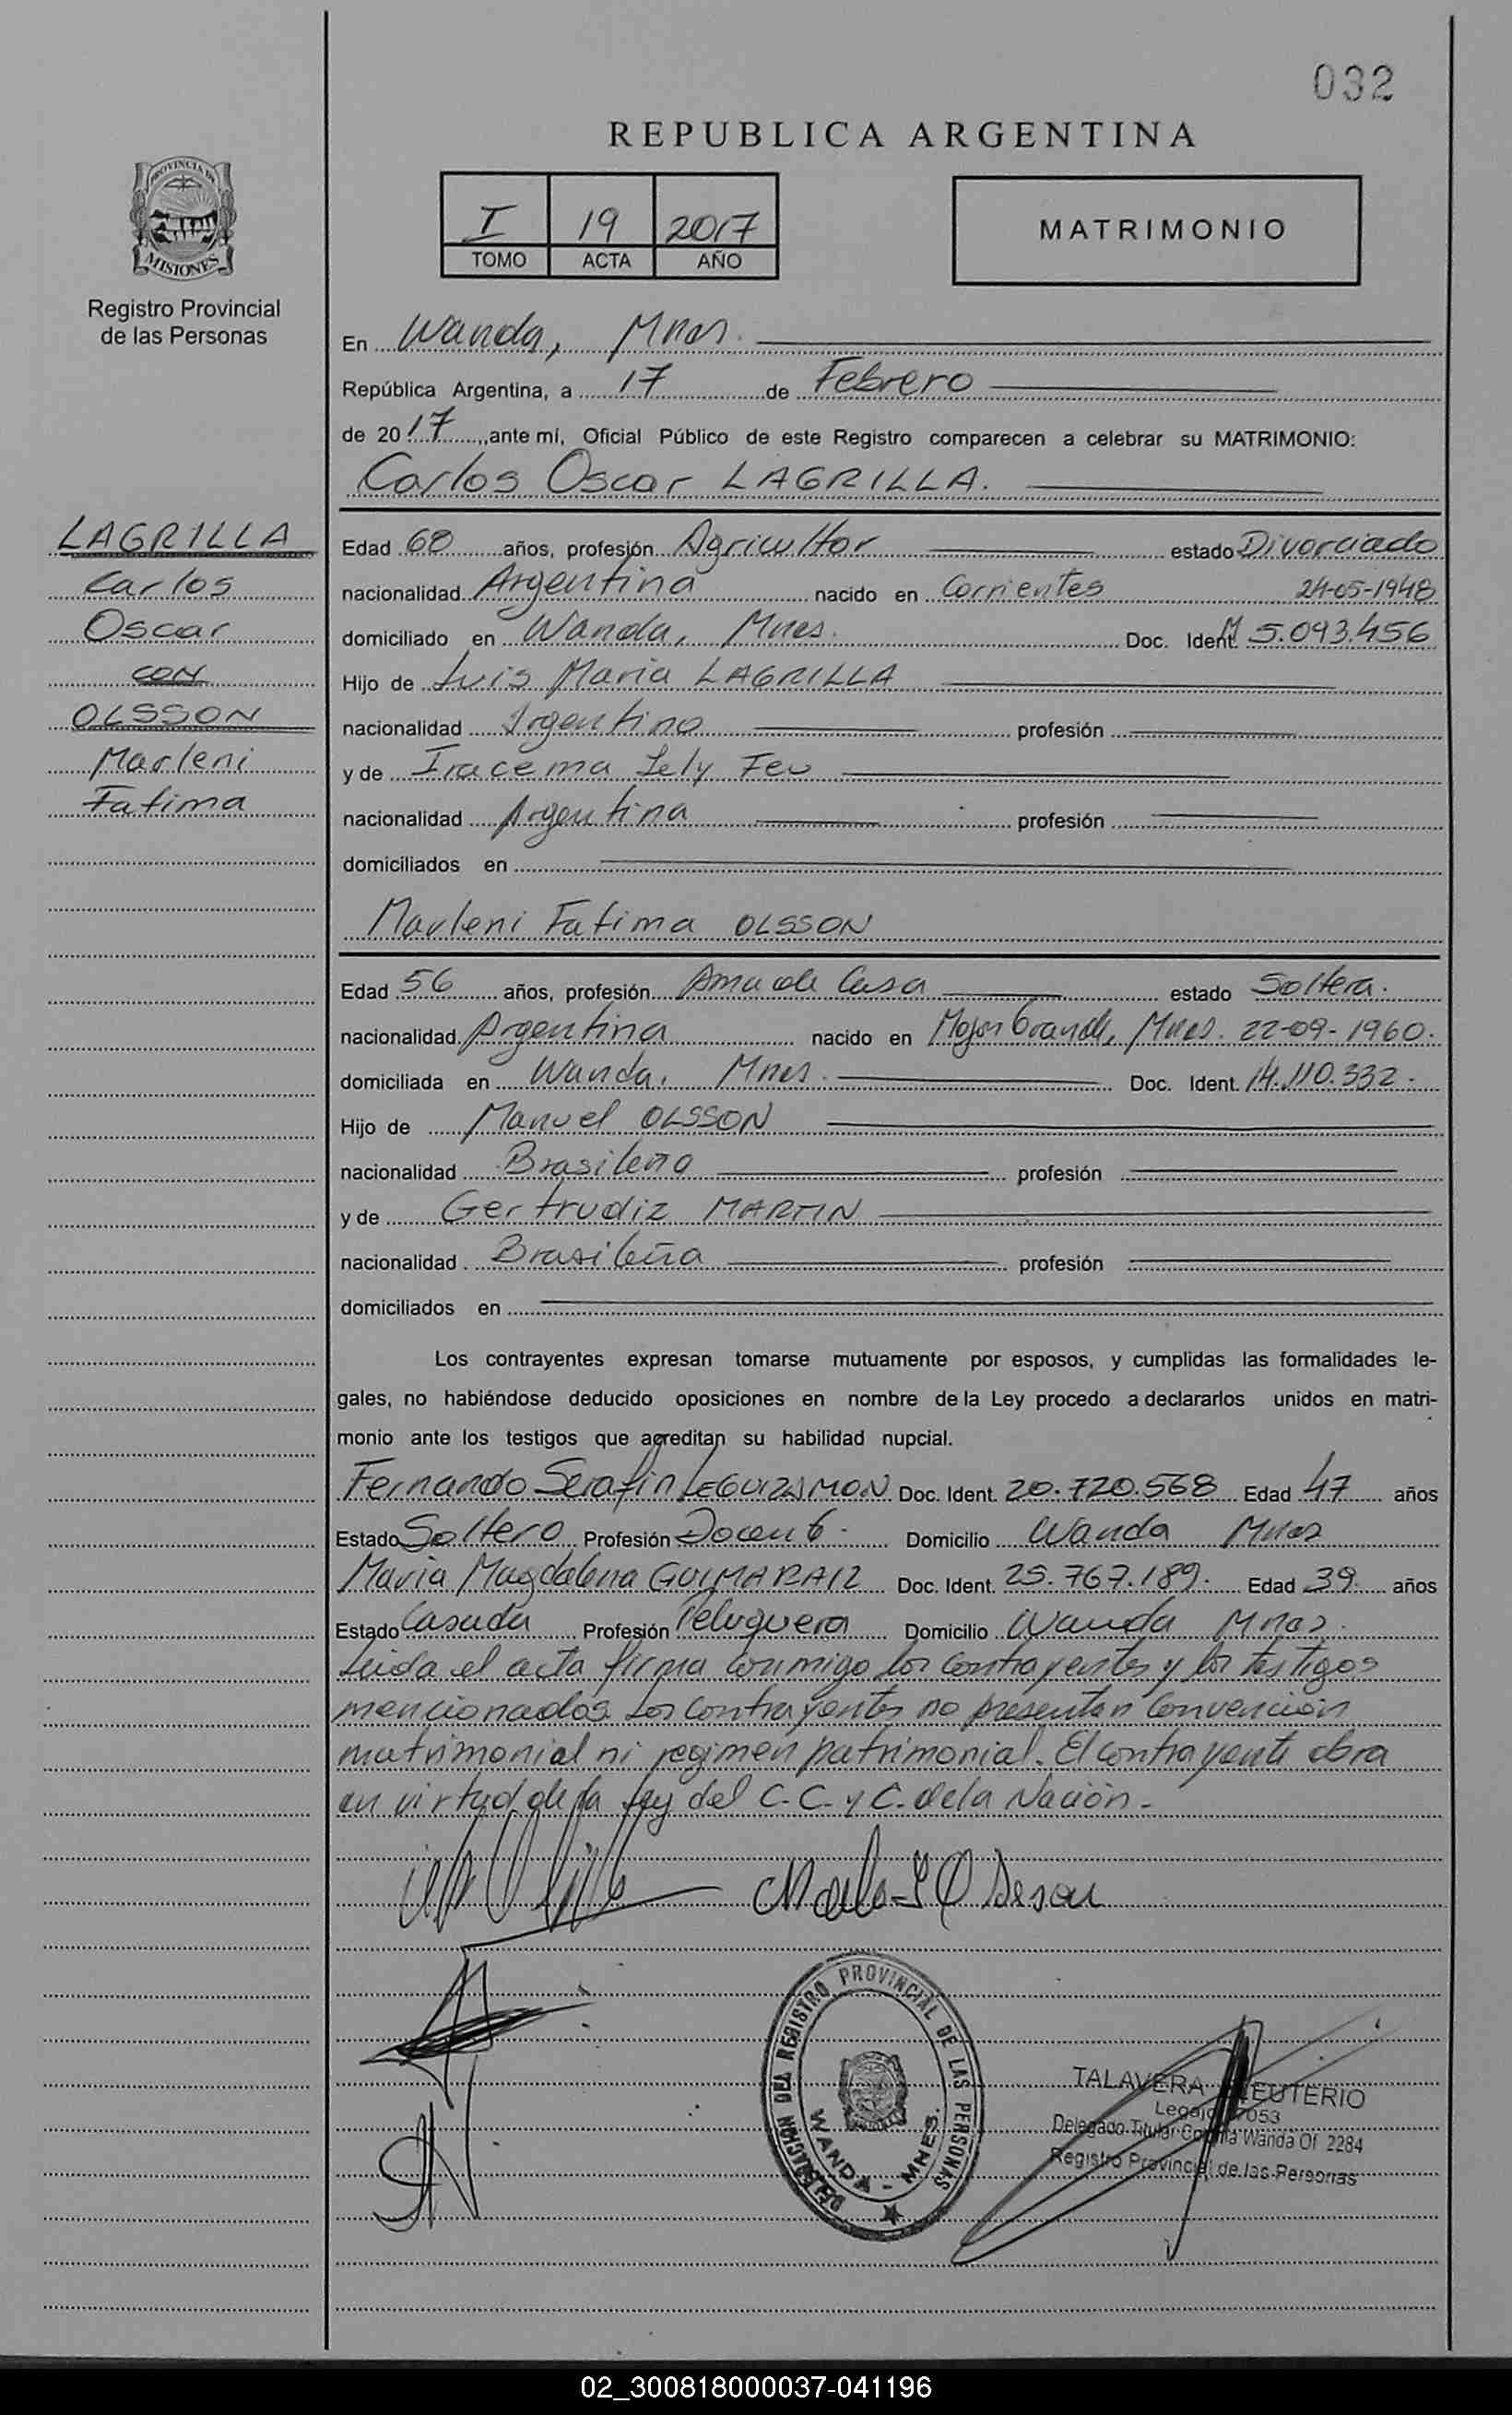 032
REPUBLICA ARGENTINA
PROVINCIA DE
MISIONES
Registro Provincial
de las Personas
I 19 2017
TOMO ACTA AÑO
MATRIMONIO
En Wanda, Mnes.
República Argentina, a 17 de Febrero
de 2017, ante mí, Oficial Público de este Registro comparecen a celebrar su MATRIMONIO:
Carlos Oscar LAGRILLA.
LAGRILLA
Carlos
Oscar
CON
OLSSON
Marleni
Fatima
Edad 68 años, profesión Agricultor estado Divorciado
nacionalidad Argentina nacido en Corrientes 24-05-1948
domiciliado en Wanda, Mnes. Doc. Ident. M 5.093.456
Hijo de Luis Maria LAGRILLA
nacionalidad Argentino profesión
y de Iracema Lely Feu
nacionalidad Argentina profesión
domiciliados en
Marleni Fatima OLSSON
Edad 56 años, profesión Ama de Casa estado Soltera.
nacionalidad Argentina nacido en Mojon Grande, Mnes. 22-09-1960.
domiciliada en Wanda, Mnes. Doc. Ident. 14.110.332.
Hijo de Manuel OLSSON
nacionalidad Brasileño profesión
y de Gertrudiz MARTIN
nacionalidad Brasileña profesión
domiciliados en
Los contrayentes expresan tomarse mutuamente por esposos, y cumplidas las formalidades le-
gales, no habiéndose deducido oposiciones en nombre de la Ley procedo a declararlos unidos en matri-
monio ante los testigos que acreditan su habilidad nupcial.
Fernando Serafin LEGUIZAMON Doc. Ident. 20.720.568 Edad 47 años
Estado Soltero Profesión Docente. Domicilio Wanda Mnes
Maria Magdalena GUIMARAIZ Doc. Ident. 25.767.189. Edad 39. años
Estado Casada Profesión Peluquera Domicilio Wanda Mnes.
Leida el acta firma conmigo los contrayentes y los testigos
mencionados. Los contrayentes no presentan Convención
matrimonial ni regimen patrimonial. El contrayente obra
en virtud de la Ley del C.C. y C. de la Nación.-
DELEGACION DEL REGISTRO PROVINCIAL DE LAS PERSONAS
WANDA - MNES.
TALAVERA ELEUTERIO
Legajo 7053
Delegado Titular Colonia Wanda Of. 2284
Registro Provincial de las Personas
02_300818000037-041196